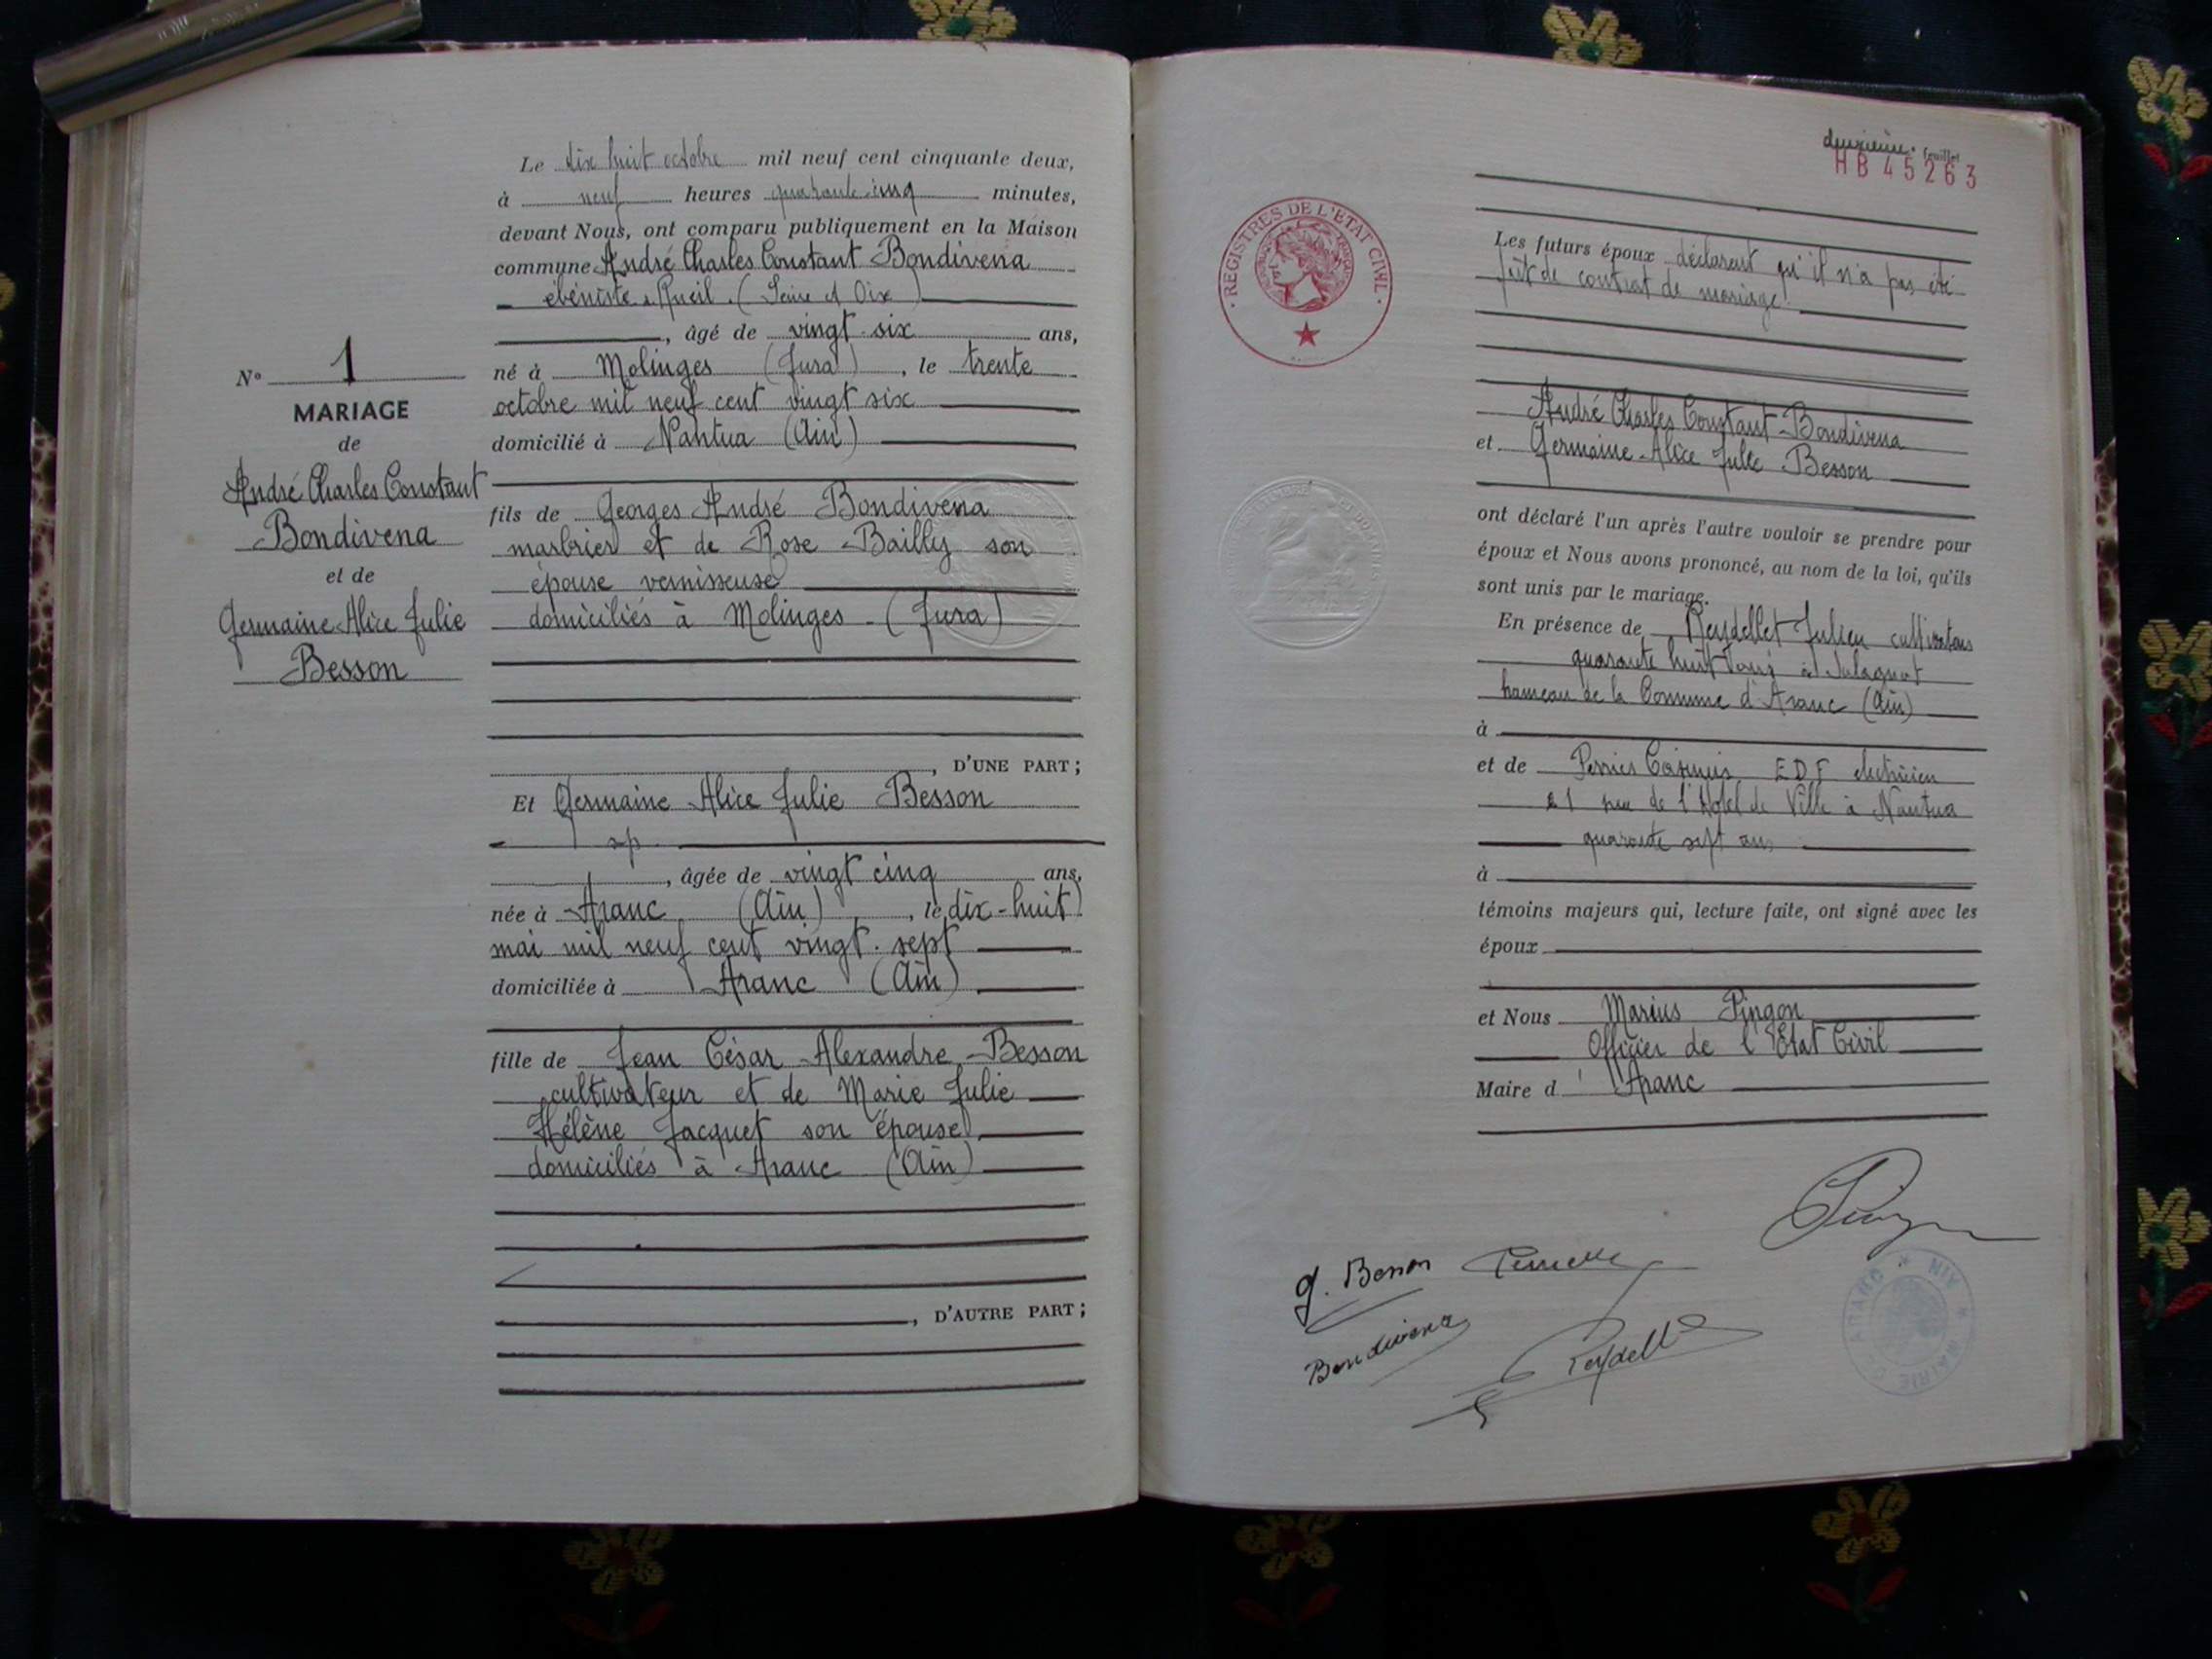 Le dix huit octobre mil neuf cent cinquante deux,
à neuf heures quarante-cinq minutes,
devant Nous, ont comparu publiquement en la Maison
commune André Charles Constant Bondivena
ébéniste à Rueil (Seine et Oise)
, âgé de vingt-six ans,
né à Molinges (Jura), le trente
octobre mil neuf cent vingt six
domicilié à Nantua (Ain)
N° 1
MARIAGE
de
André Charles Constant
Bondivena
et de
Germaine Alice Julie
Besson
fils de Georges André Bondivena
marbrier et de Rose Bailly son
épouse vernisseuse
domiciliés à Molinges - (Jura)
, D'UNE PART ;
Et Germaine Alice Julie Besson
sp.
, âgée de vingt cinq ans,
née à Aranc (Ain), le dix-huit
mai mil neuf cent vingt-sept
domiciliée à Aranc (Ain)
fille de Jean César Alexandre Besson
cultivateur et de Marie Julie
Hélène Jacquet son épouse
domiciliés à Aranc (Ain)
, D'AUTRE PART ;
deuxième feuillet
HB 45263
REGISTRES DE L'ETAT CIVIL
Les futurs époux déclarent qu'il n'a pas été
fait de contrat de mariage.
André Charles Constant Bondivena
et Germaine Alice Julie Besson
ont déclaré l'un après l'autre vouloir se prendre pour
époux et Nous avons prononcé, au nom de la loi, qu'ils
sont unis par le mariage.
En présence de Reydellet Julien cultivateur
quarante huit ans à
hameau de la Commune d'Aranc (Ain)
à
et de EDF électricien
rue de l'Hotel de Ville à Nantua
quarante sept ans
à
témoins majeurs qui, lecture faite, ont signé avec les
époux
et Nous Marius Pingon
Officier de l'Etat Civil
Maire d'Aranc
G. Besson
Bondivena
Reydellet
MAIRIE D'ARANC * AIN *